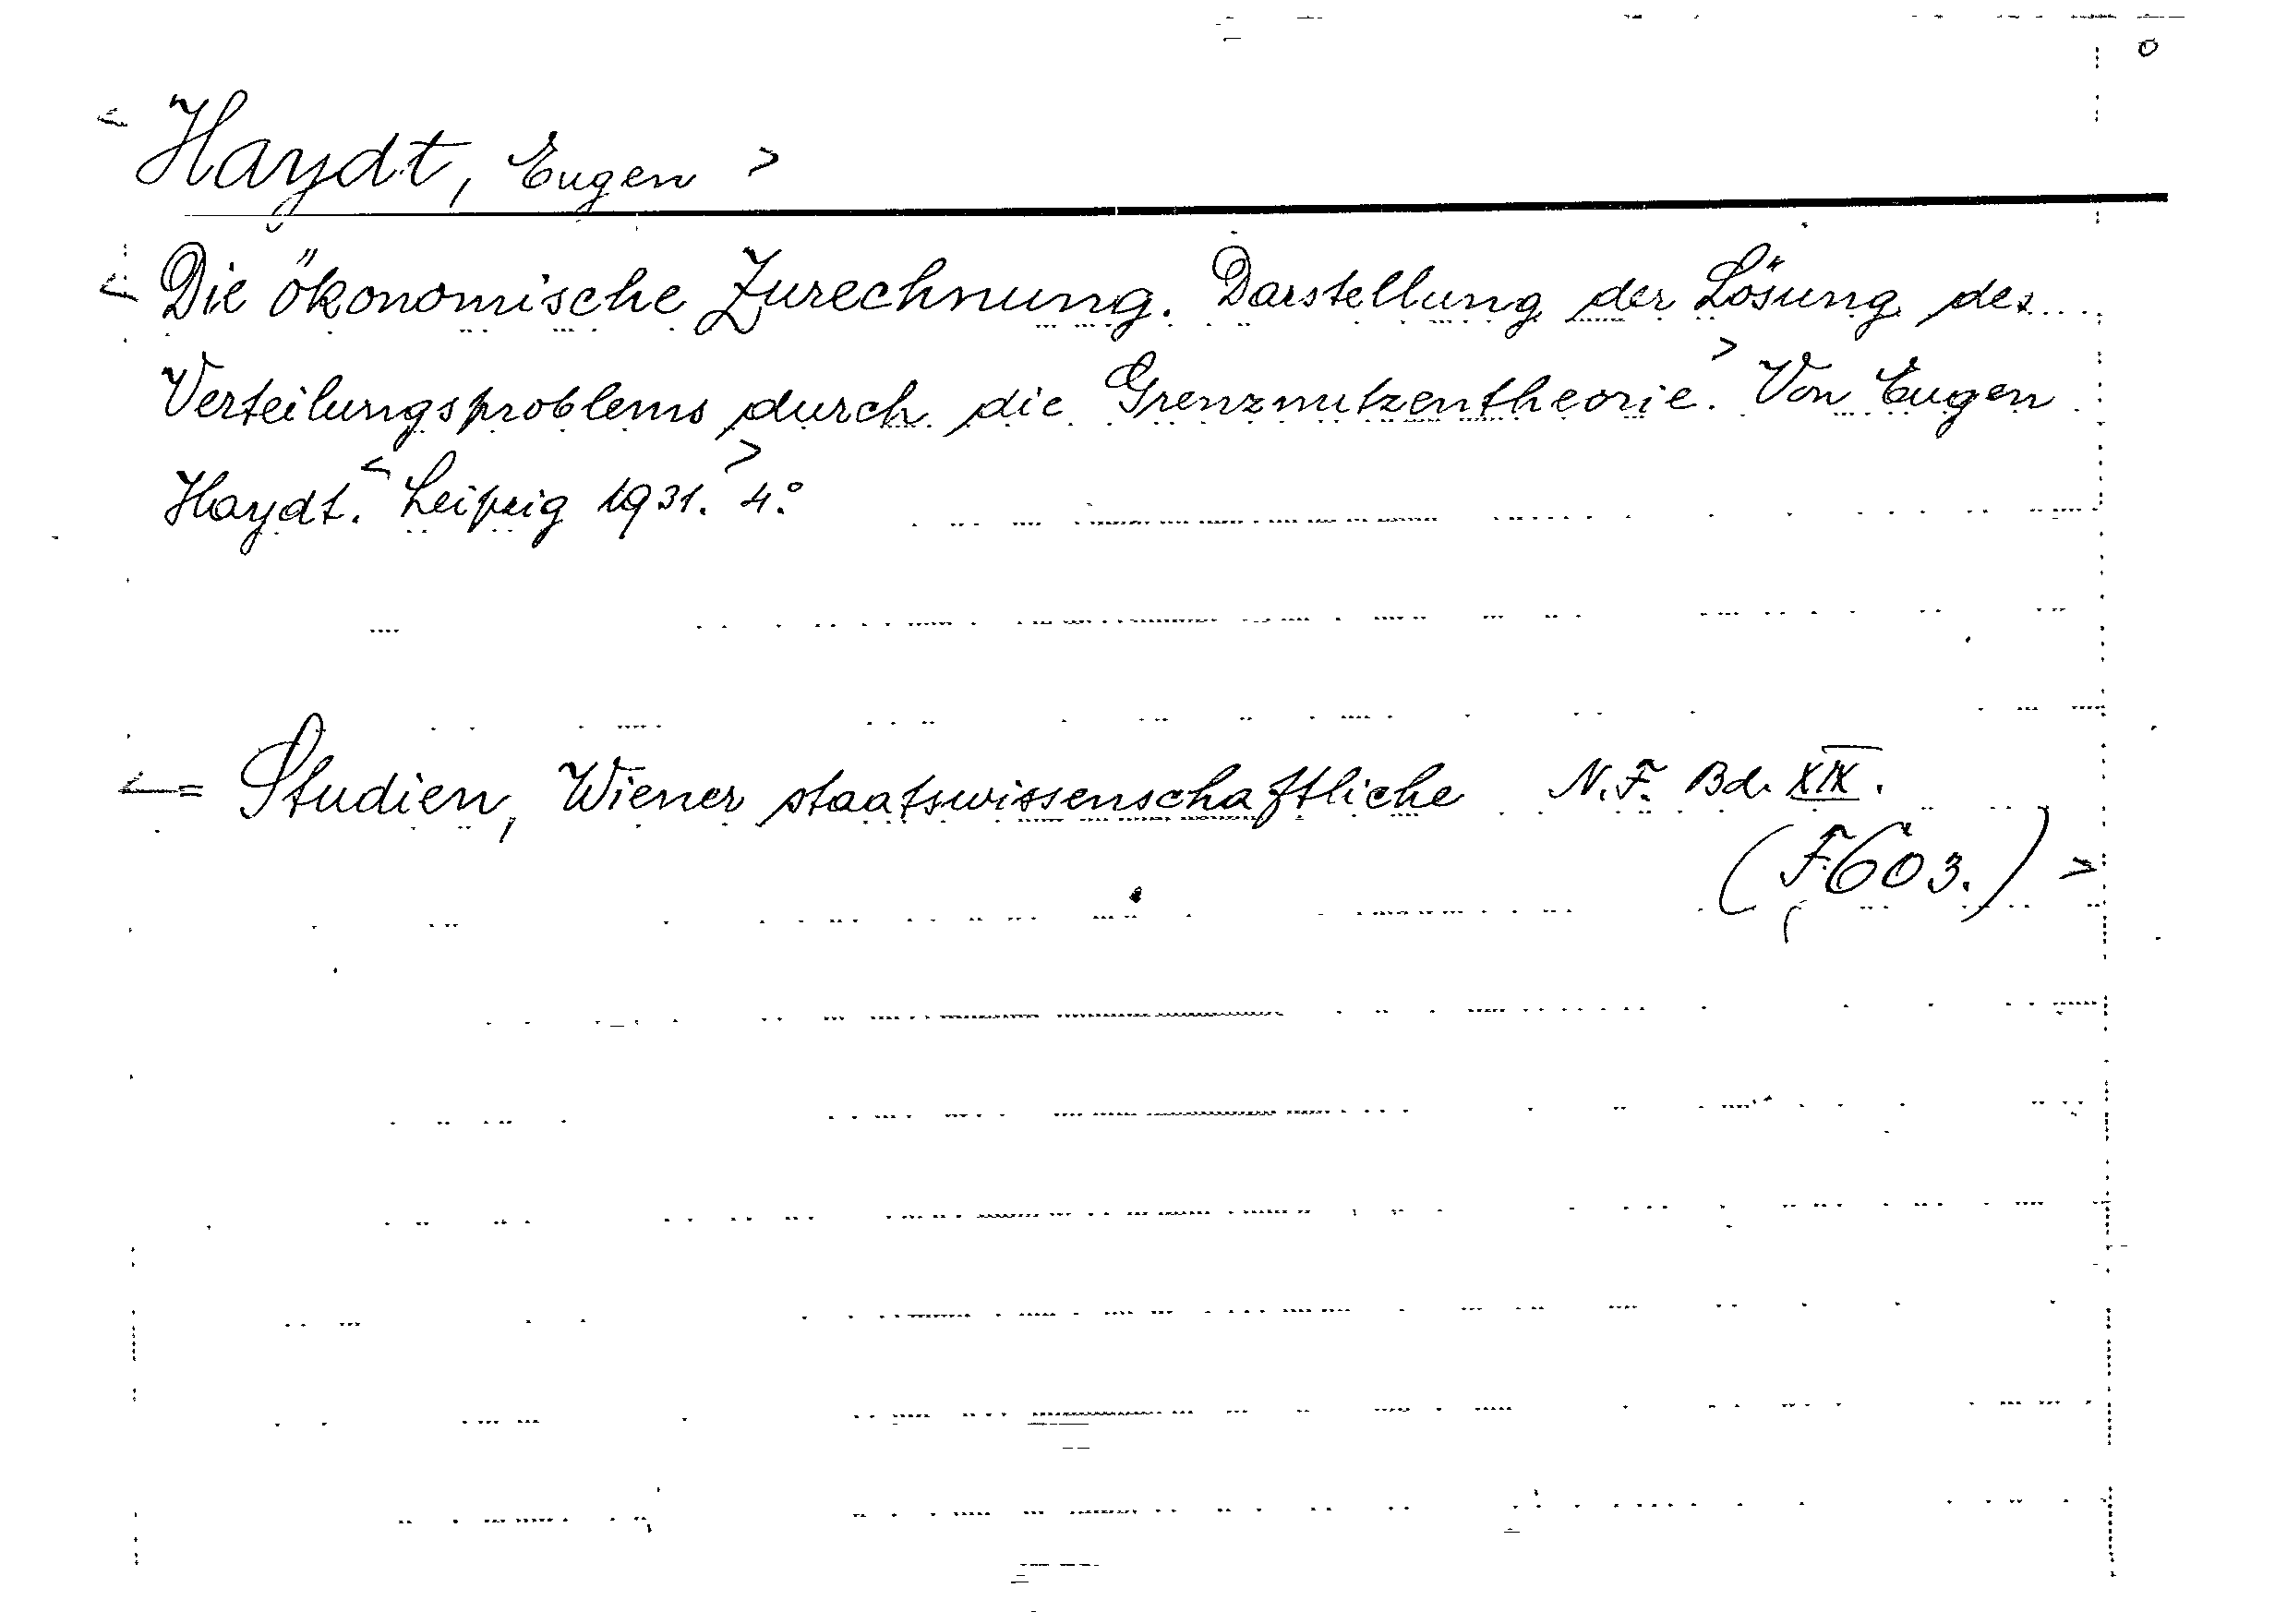 < Haydt, Eugen >
< Die ökonomische Zurechnung. Darstellung der Lösung des
Verteilungsproblems durch die Grenznutzentheorie.> Von Eugen
Haydt. < Leipzig 1931. > 4.°
<= Studien, Wiener staatswissenschaftliche N.F. Bd. XIX.
(F603.) >